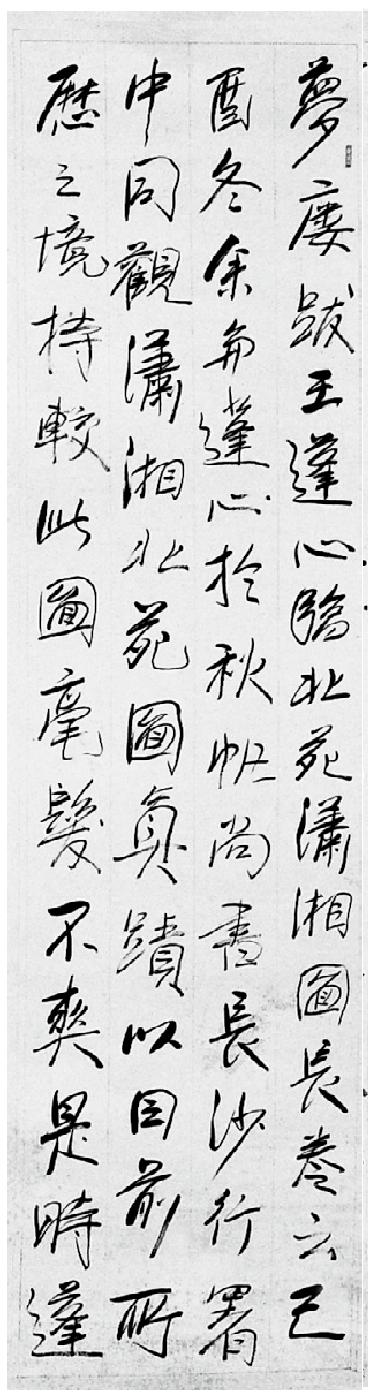 夢廔跋王蓬心臨北苑瀟湘圖長卷云己
酉冬余與蓬心於秋帆尚書長沙行署
中同觀瀟湘北苑圖真蹟以目前所
歷之境持較此圖毫髮不爽是時蓬